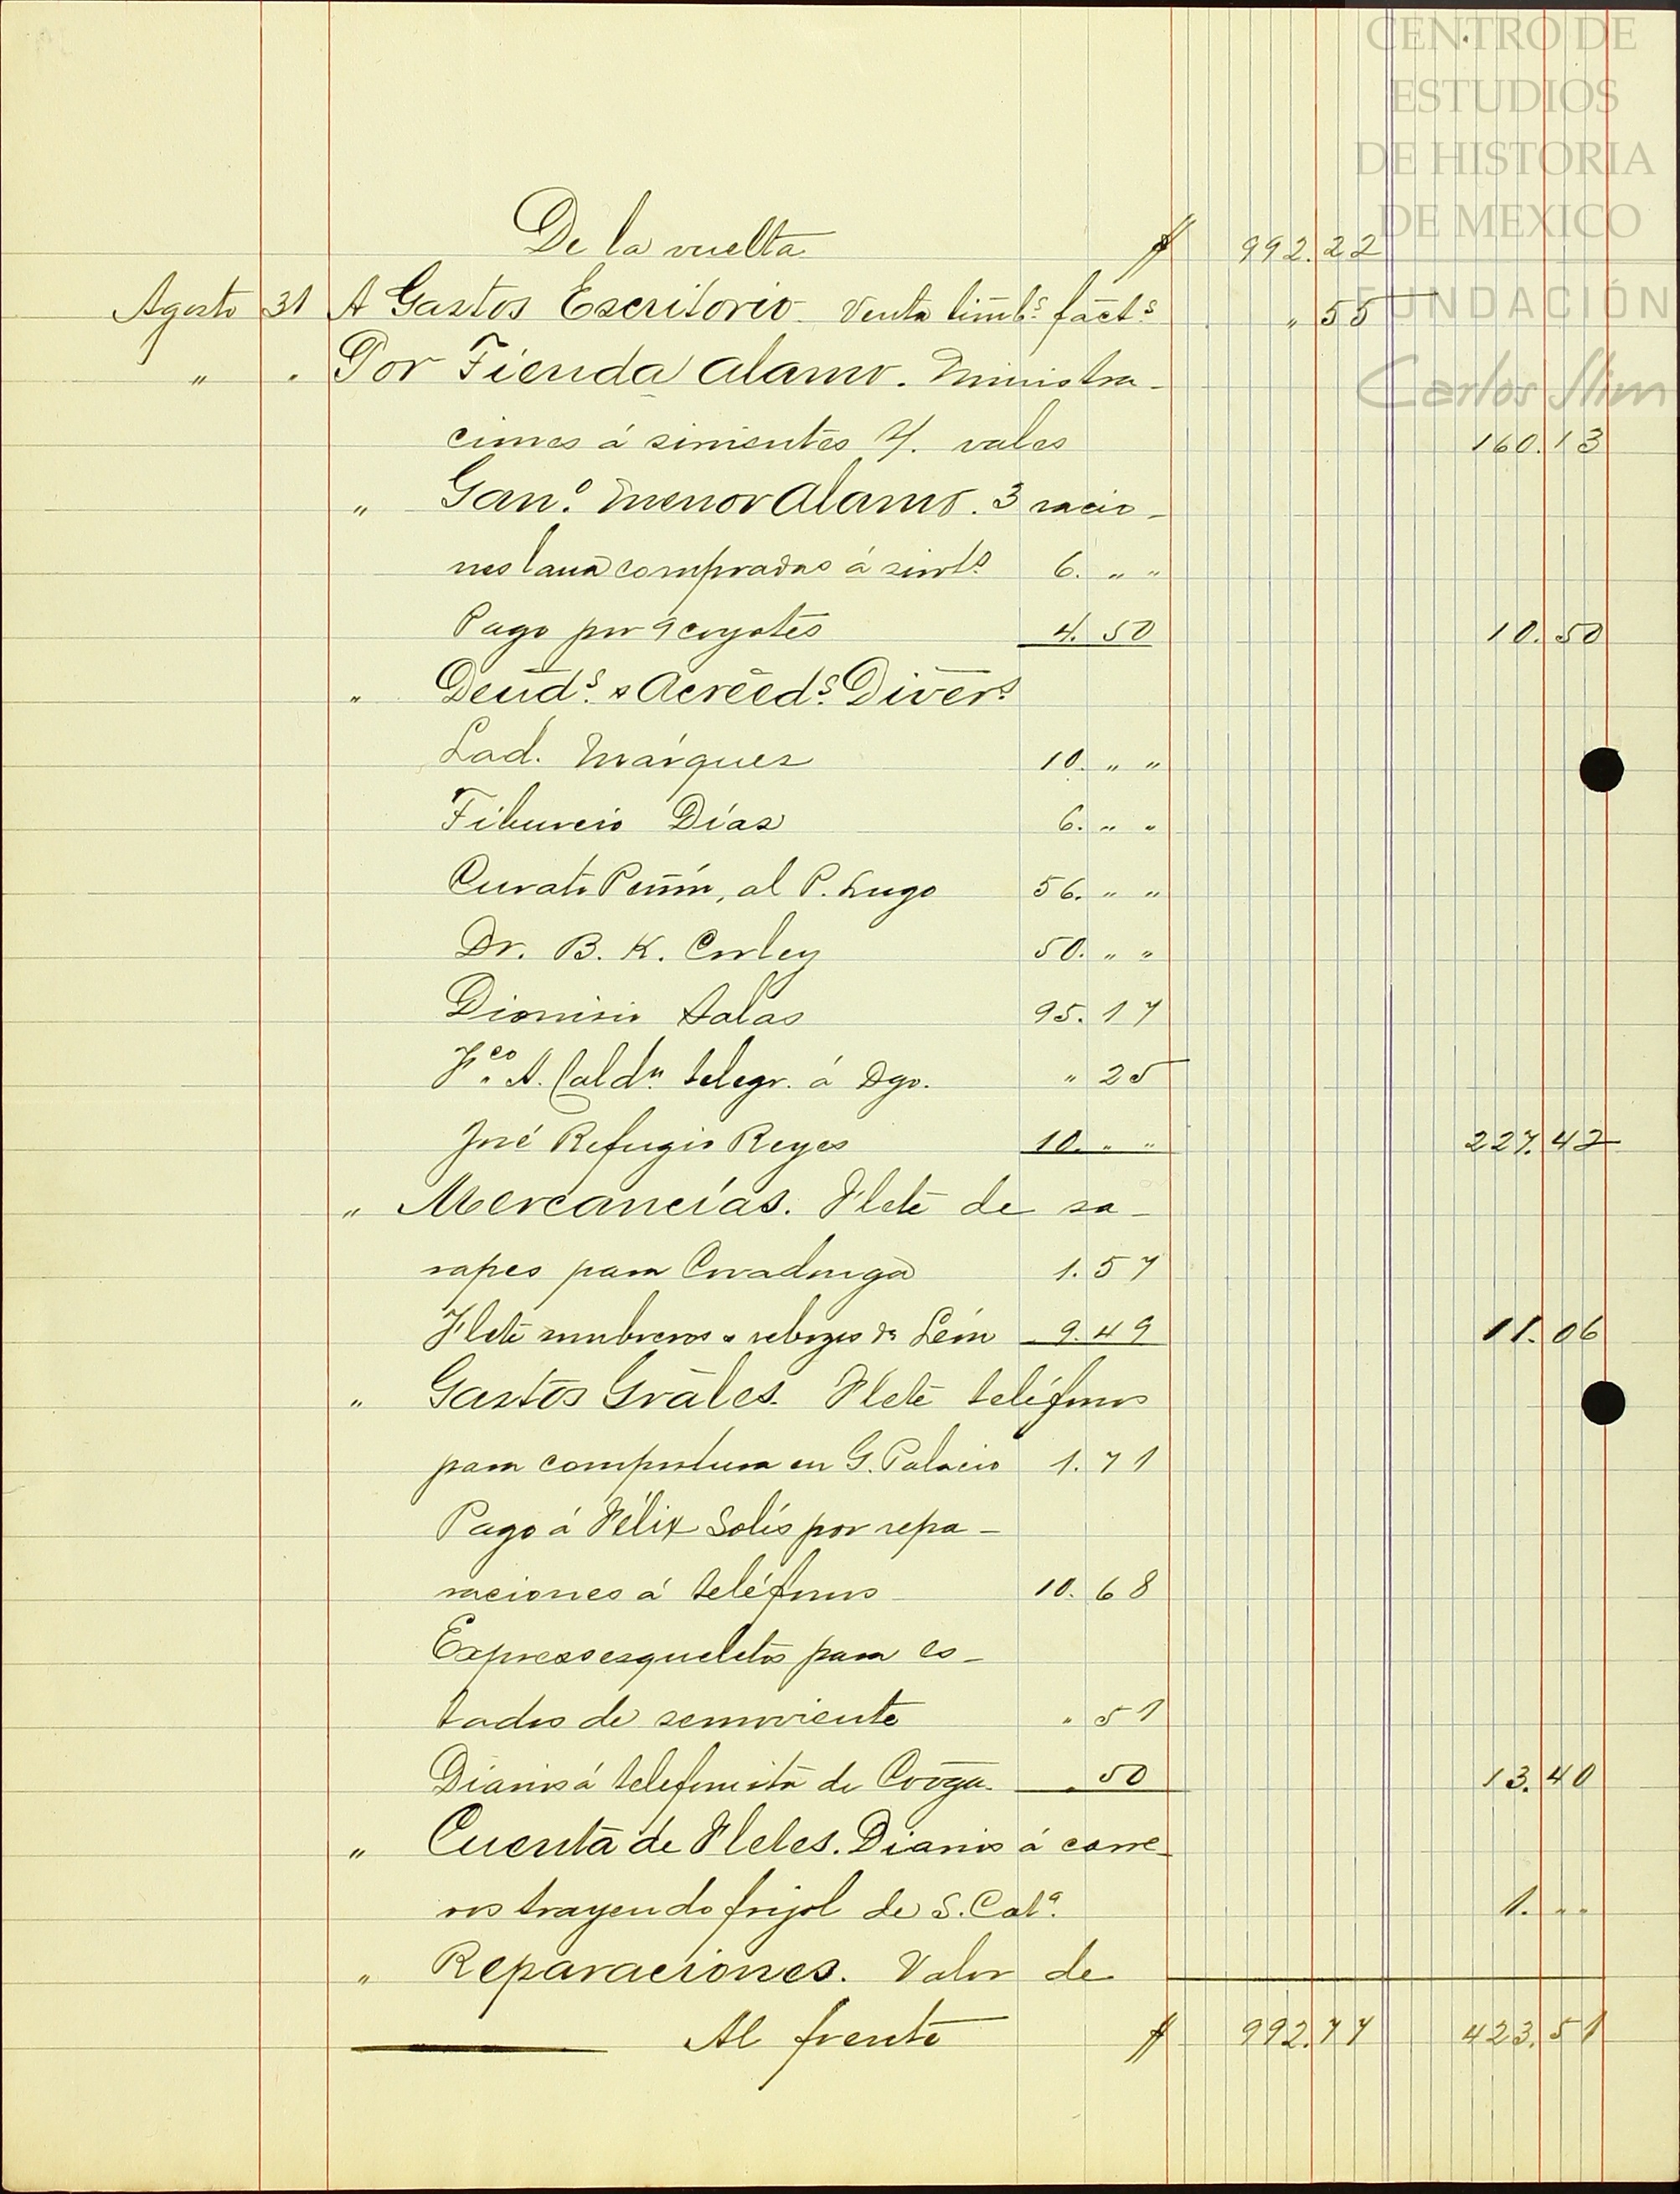 CENTRO DE
ESTUDIOS
DE HISTORIA
DE MEXICO
FUNDACIÓN
Carlos Slim
De la vuelta $ 992.22
Agosto 31 A Gastos Escritorio. Venta timbs. facts. " 55
" " Por Tienda Alamo. Ministra-
ciones á sirvientes 4. vales 160.13
" Gano. menor Alamo. 3 racio-
nes lana compradas á sirvts. 6. " "
Pago por 9 coyotes 4.50 10.50
" Deuds. & Acreeds. Divers.
Lad. Márquez 10. " "
Tiburcio Días 6. " "
Curato Peñón, al P. Lugo 56. " "
Dr. B. K. Corley 50. " "
Dionisio Salas 95.17
Fco. A. Caldn. telegr. á Dgo. " 25
José Refugio Reyes 10. " " 227.42
" Mercancías. Flete de sa-
rapes para Covadonga 1.57
Flete sombreros & rebozos de León 9.49 11.06
" Gastos Grales. Flete teléfonos
para compostura en G. Palacio 1.71
Pago á Félix Solís por repa-
raciones á teléfonos 10.68
Express esqueletos para es-
tados de semoviente " 51
Diarios á telefonista de Covga. " 50 13.40
" Cuenta de Fletes. Diarios á carre-
ros trayendo frijol de S. Cata. 1. " "
" Reparaciones. Valor de
Al frente $ 992.77 423.51